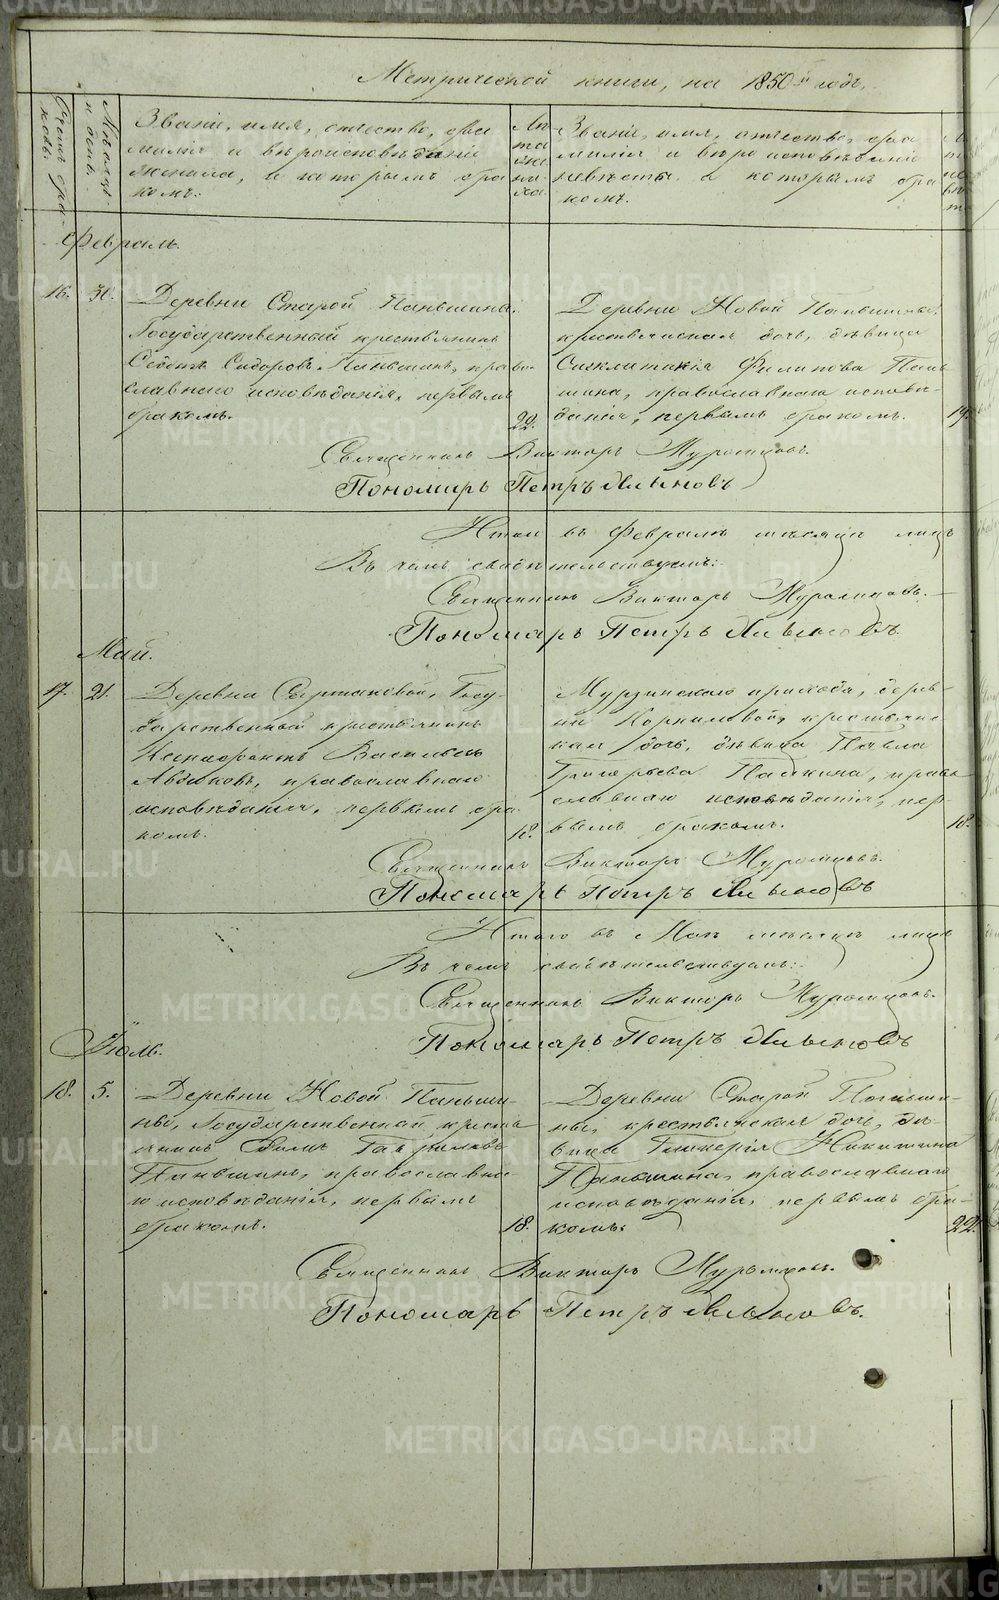 Метрической книги, на 1850й годъ.
Счетъ бра-
ковъ.
Мѣсяцъ
и день.
Званіе, имя, отчество, фа
милія и вѣроисповѣданіе
жениха, и которымъ бра
комъ.
Лѣ
та
же
ни
ха.
Званіе, имя, отчество, фа
милія и вѣроисповѣданіе
невѣсты и которымъ бра
комъ.
Февраль.
16.
Деревни Старой Паньшина.
Государственный крестьянинъ
Сидоровъ Паньшинъ, право
славнаго исповѣданія, первымъ
бракомъ.
22.
Деревни Новой Паньшиной,
крестьянская дочь, дѣвица
Синклитикія Филипова Пань
шина, православнаго исповѣ
данія, первымъ бракомъ.
19.
Священникъ Викторъ Муромцовъ.
Пономарь Петръ
Итого въ Февралѣ мѣсяцѣ лицъ
Въ чемъ свидѣтельствуемъ:
Священникъ Викторъ Муромцовъ.
Пономарь Петръ
Май.
17.
21.
Деревни Госу-
дарственный крестьянинъ
Васильевъ
православнаго
исповѣданія, первымъ бра
комъ.
18.
Мурзинскаго прихода, дерев
ни Корниловой, крестьянс
кая дочь, дѣвица Павла
Григорьева право
славнаго исповѣданія, пер-
вымъ бракомъ.
18.
Священникъ Викторъ Муромцовъ.
Пономарь Петръ
Итого въ Маѣ мѣсяцѣ лицъ
Въ чемъ свидѣтельствуемъ:
Священникъ Викторъ Муромцовъ.
Пономарь Петръ
Іюль.
18.
5.
Деревни Новой Паньши-
ны, Государственной кресть
янинъ Гавриловъ
Паньшинъ, православна
го исповѣданія, первымъ
бракомъ.
18.
Деревни Старой Паньши-
ны, крестьянская дочь, дѣ-
вица Гликерія Никитина
Паньшина, православнаго
исповѣданія, первымъ бра-
комъ.
22.
Священникъ Викторъ Муромцовъ.
Пономарь Петръ
METRIKI.GASO-URAL.RU